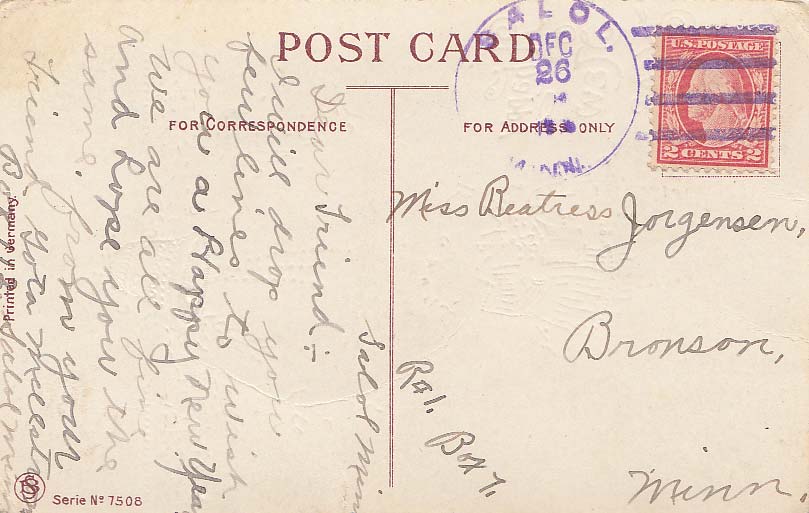 POST CARD
FOR CORRESPONDENCE
FOR ADDRESS ONLY
SALOL.
DEC
26
MINN.
U.S. POSTAGE
2 CENTS 2
Salol Minn
Dear Friend:-
I will drop you
few lines to wish
you a Happy New Year
we are all fine
and hope you the
same. from your
friend Gota
Box Salol Minn
Miss Beatress Jorgensen,
Bronson,
Minn.
R#1. Box 7.
Printed in Germany.
Serie No 7508